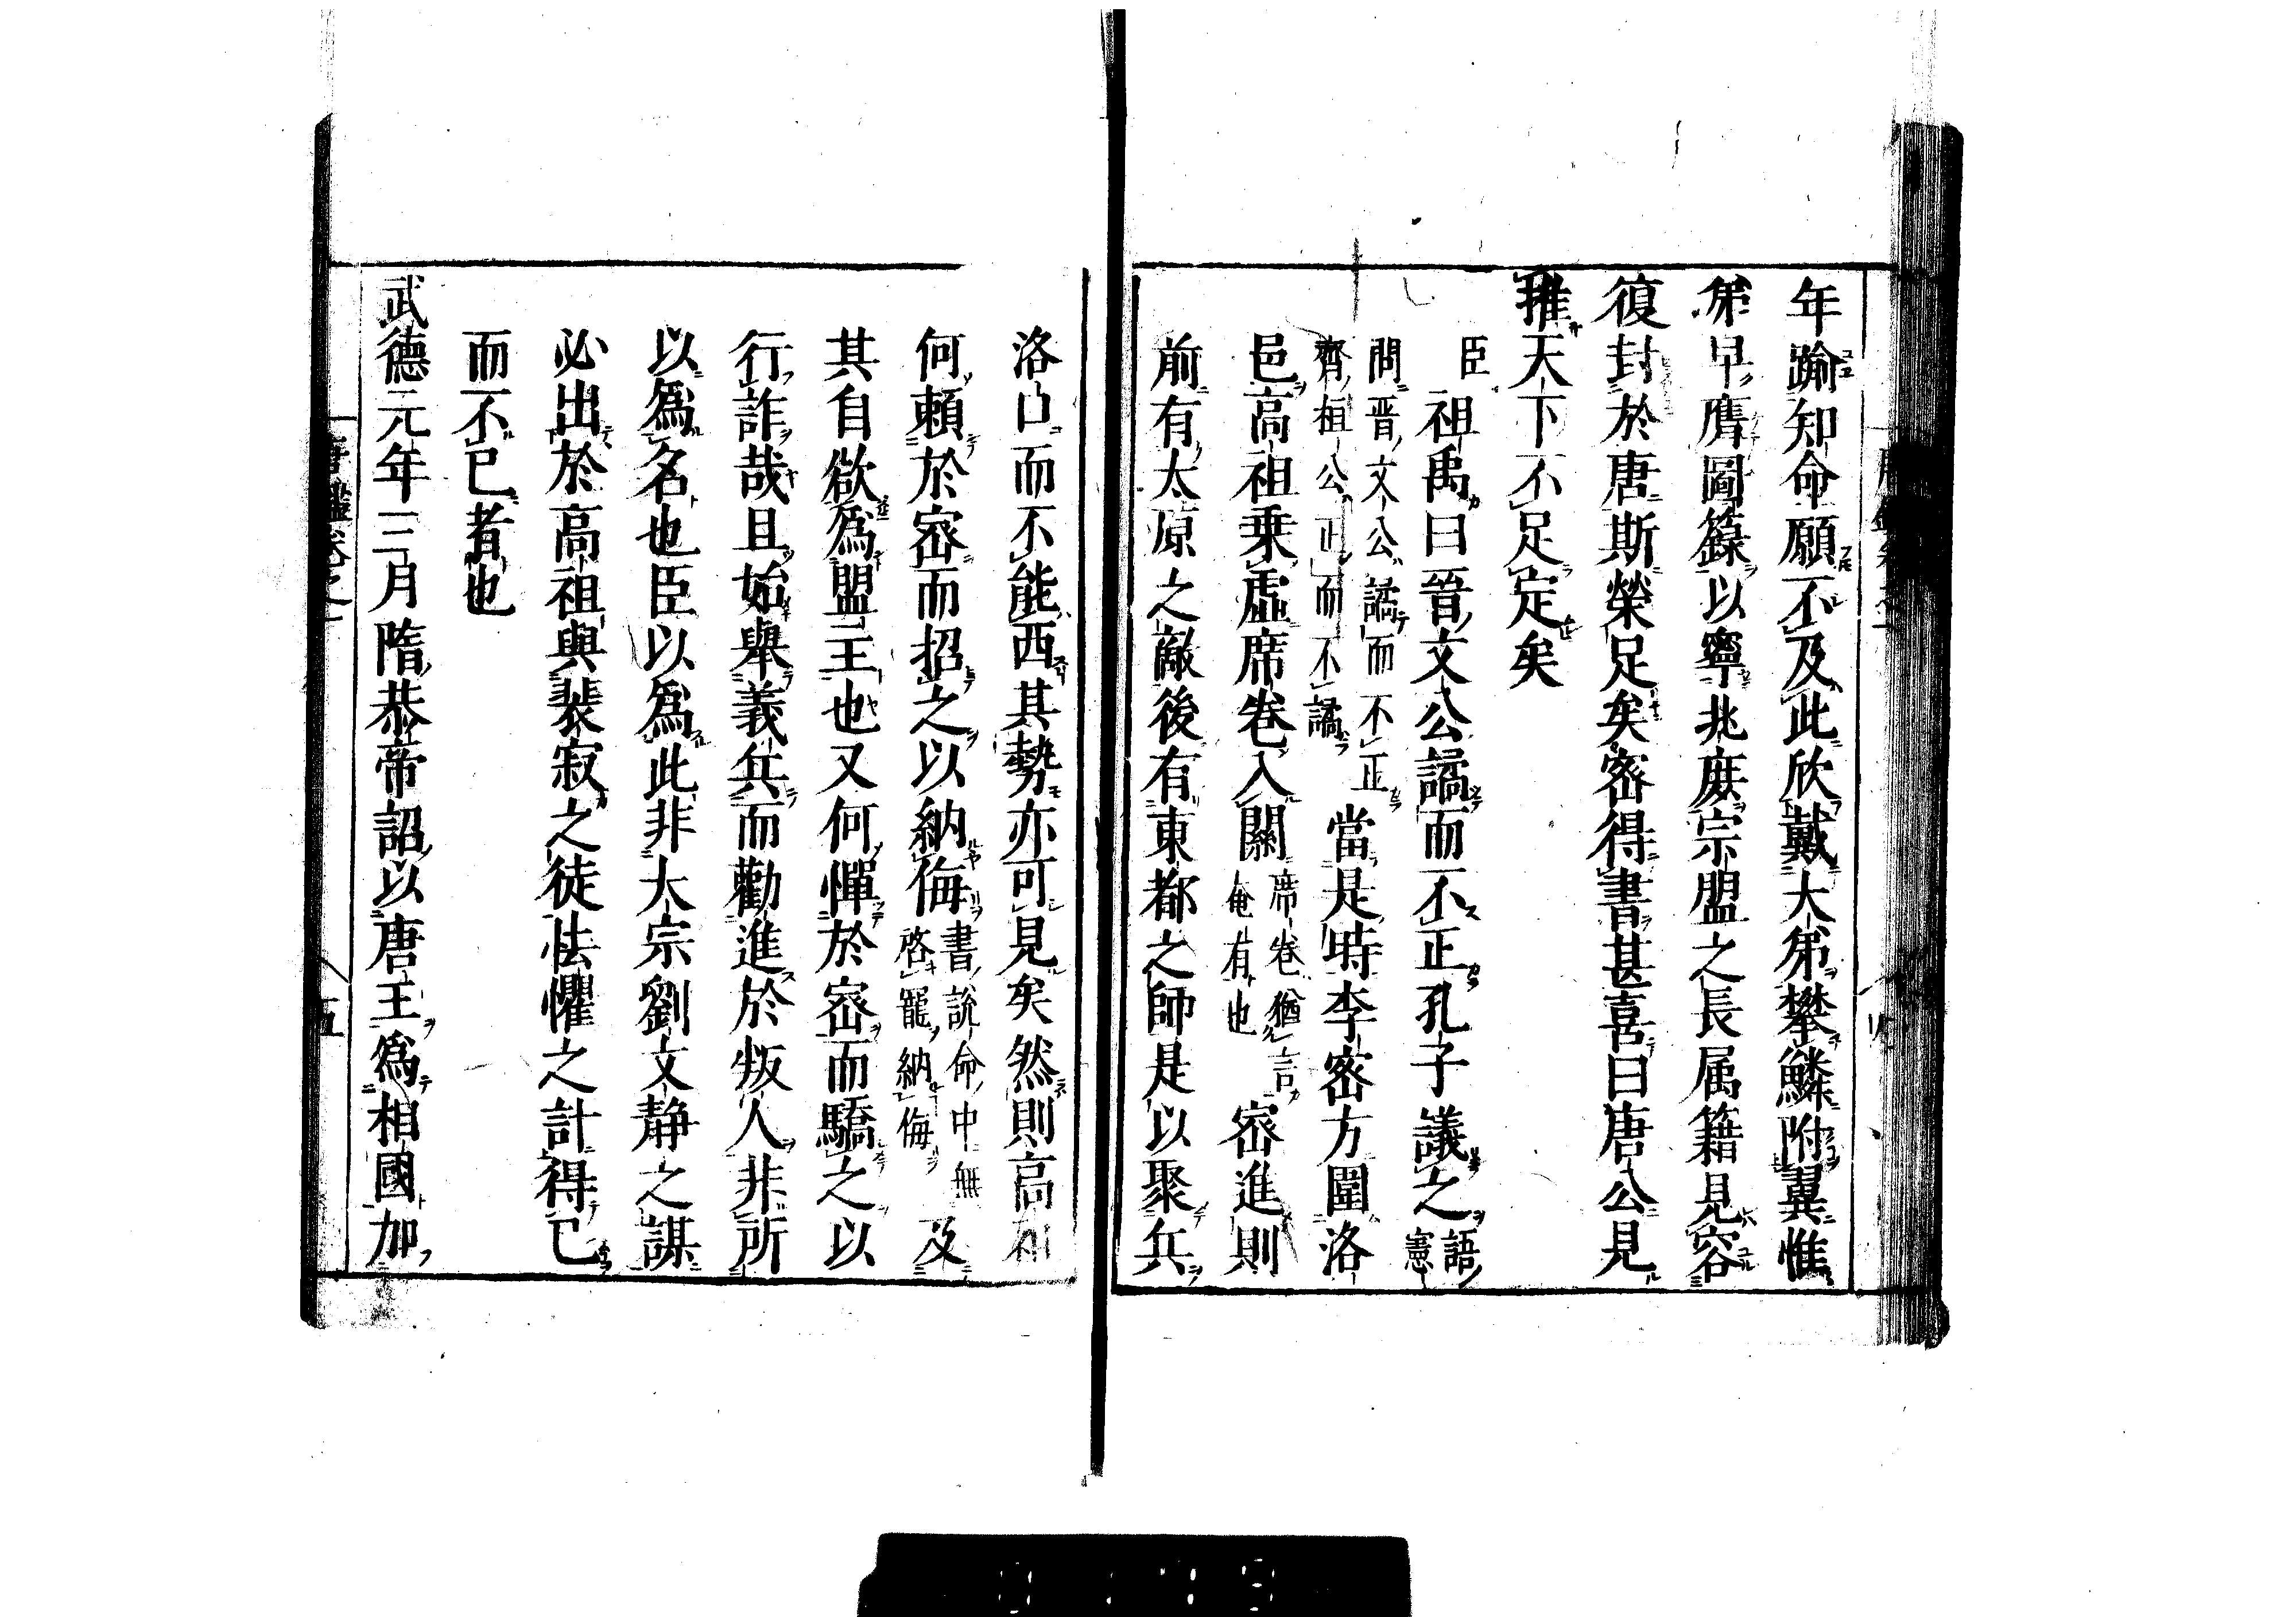 年踰知命願不及此欣戴大弟攀鱗附翼惟
弟早膺圖籙以寧兆庶宗盟之長属籍見容
復封於唐斯榮足矣宻得書甚喜曰唐公見
推天下不足定矣
臣祖禹曰晉文公譎而不正孔子議之語憲
問晋文公譎而不正
齊桓公正而不譎當是時李宻方圍洛
邑高祖乗虚席卷入關席卷猶言
奄有也宻進則
前有太原之敵後有東都之師是以聚兵
洛口而不能西其勢亦可見矣然則高祖
何頼於宻而招之以納侮書說命中無
啓寵納侮及
其自欲爲盟主也又何憚於宻而驕之以
行詐哉且始舉義兵而勸進於叛人非所
以爲名也臣以爲此非太宗劉文靜之謀
必出於高祖與裴寂之徒怯懼之計得已
而不已者也
武德元年三月隋恭帝詔以唐王爲相國加
唐鑑卷之一
五